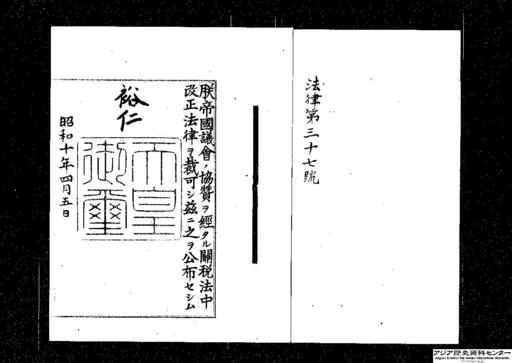 法律第三十七號
朕帝國議會ノ協贊ヲ經タル關税法中
改正法律ヲ裁可シ茲ニ之ヲ公布セシム
裕仁
天皇御璽
昭和十年四月五日
アジア歴史資料センター
Japan Center for Asian Historical Records